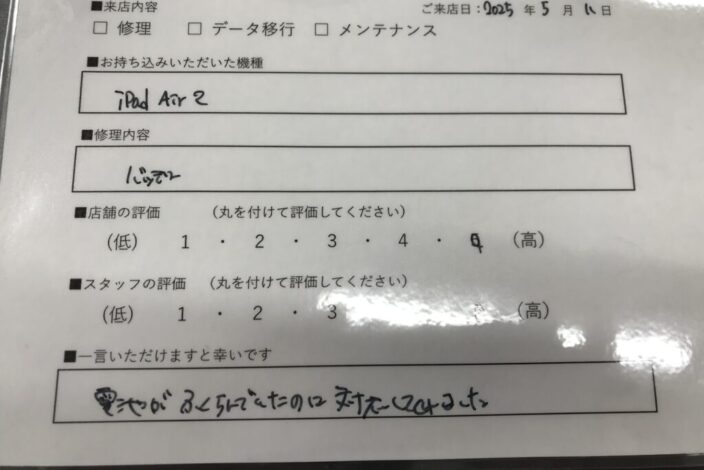 ■来店内容 ご来店日：2025 年 5 月 11 日
□ 修理 □ データ移行 □ メンテナンス
■お持ち込みいただいた機種
iPad Air 2
■修理内容
バッテリー
■店舗の評価 （丸を付けて評価してください）
（低） 1 ・ 2 ・ 3 ・ 4 ・ （高）
■スタッフの評価 （丸を付けて評価してください）
（低） 1 ・ 2 ・ 3 （高）
■一言いただけますと幸いです
電池がふくらんでたのに対応してくれました